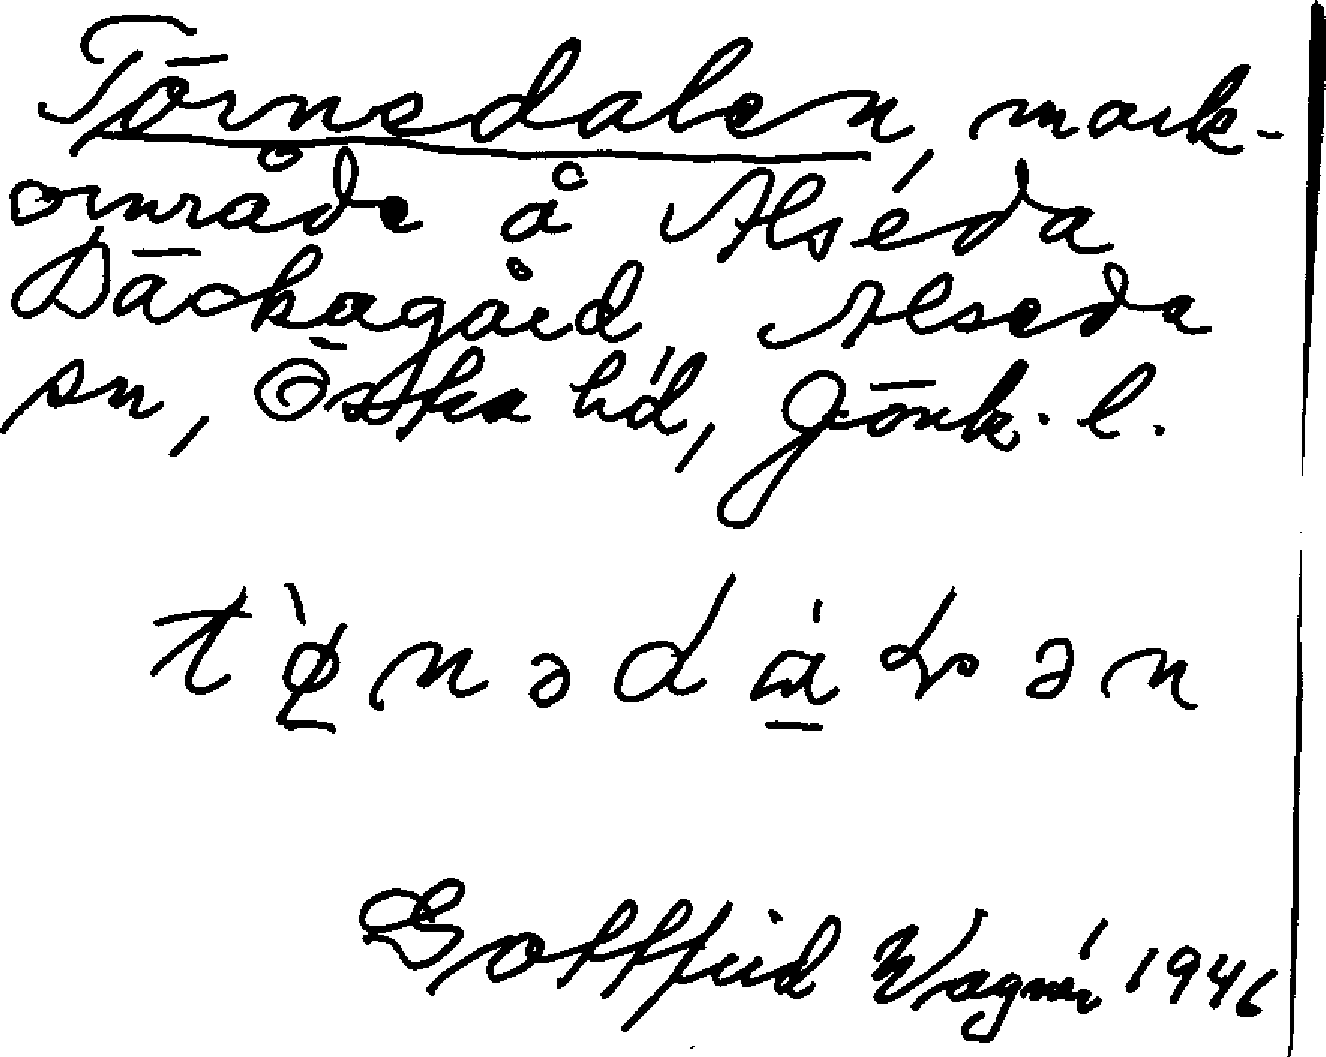 Törnedalen, mark-
område å Alséda
Bäckagård, Alseda
sn, Östra hd, Jönk. l.
Gottfrid Wagnér 1946